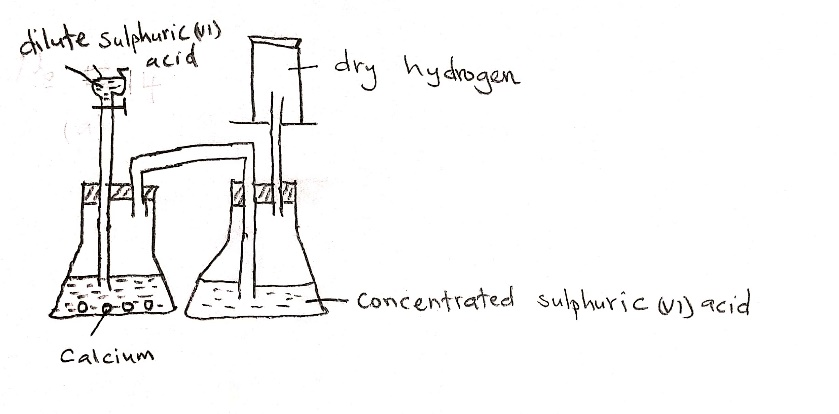 dilute sulphuric (VI)
acid
dry hydrogen
Concentrated sulphuric (VI) acid
Calcium